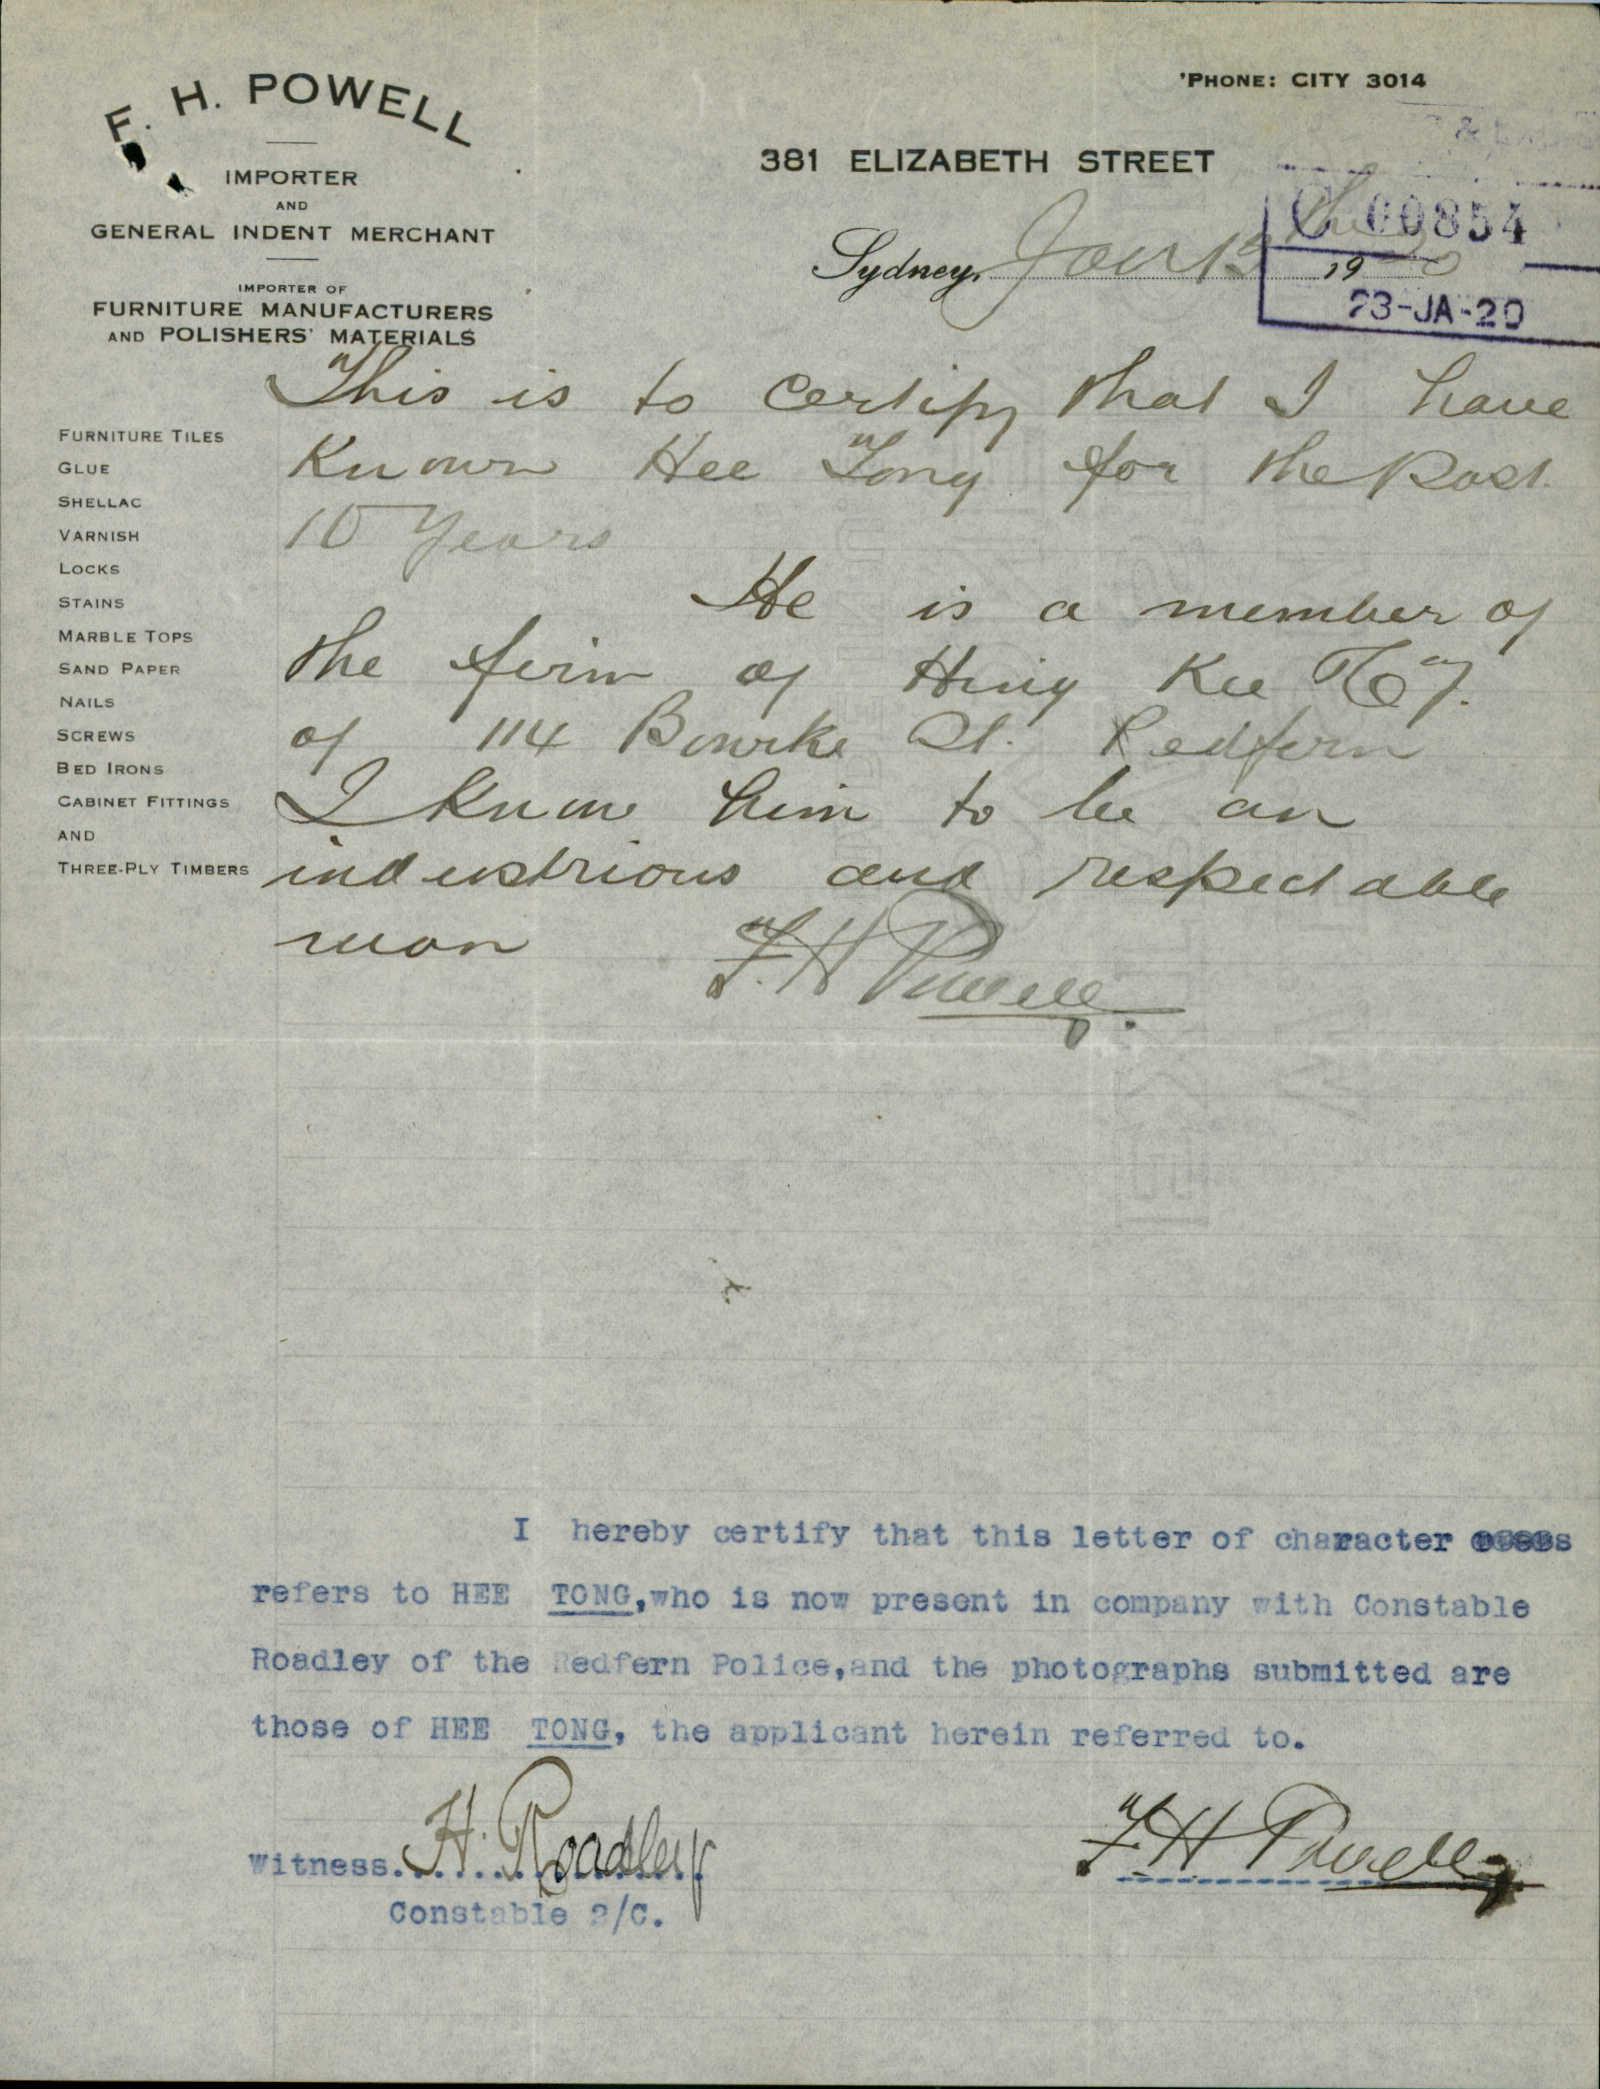 F. H. POWELL
IMPORTER
AND
GENERAL INDENT MERCHANT
IMPORTER OF
FURNITURE MANUFACTURERS
AND POLISHERS' MATERIALS
'PHONE: CITY 3014
381 ELIZABETH STREET
C 00854
Sydney, Jan 13 1920
23-JA-20
FURNITURE TILES
GLUE
SHELLAC
VARNISH
LOCKS
STAINS
MARBLE TOPS
SAND PAPER
NAILS
SCREWS
BED IRONS
CABINET FITTINGS
AND
THREE-PLY TIMBERS
This is to certify that I have
Known Hee Tong for the past
10 Years
He is a member of
the firm of Hing Kee & Coy.
of 114 Bourke St. Redfern
I know him to be an
industrious and respectable
man F. H Powell.
I hereby certify that this letter of character
refers to HEE TONG,who is now present in company with Constable
Roadley of the Redfern Police,and the photographs submitted are
those of HEE TONG, the applicant herein referred to.
Witness. H. Roadley
Constable 2/C.
F H Powell